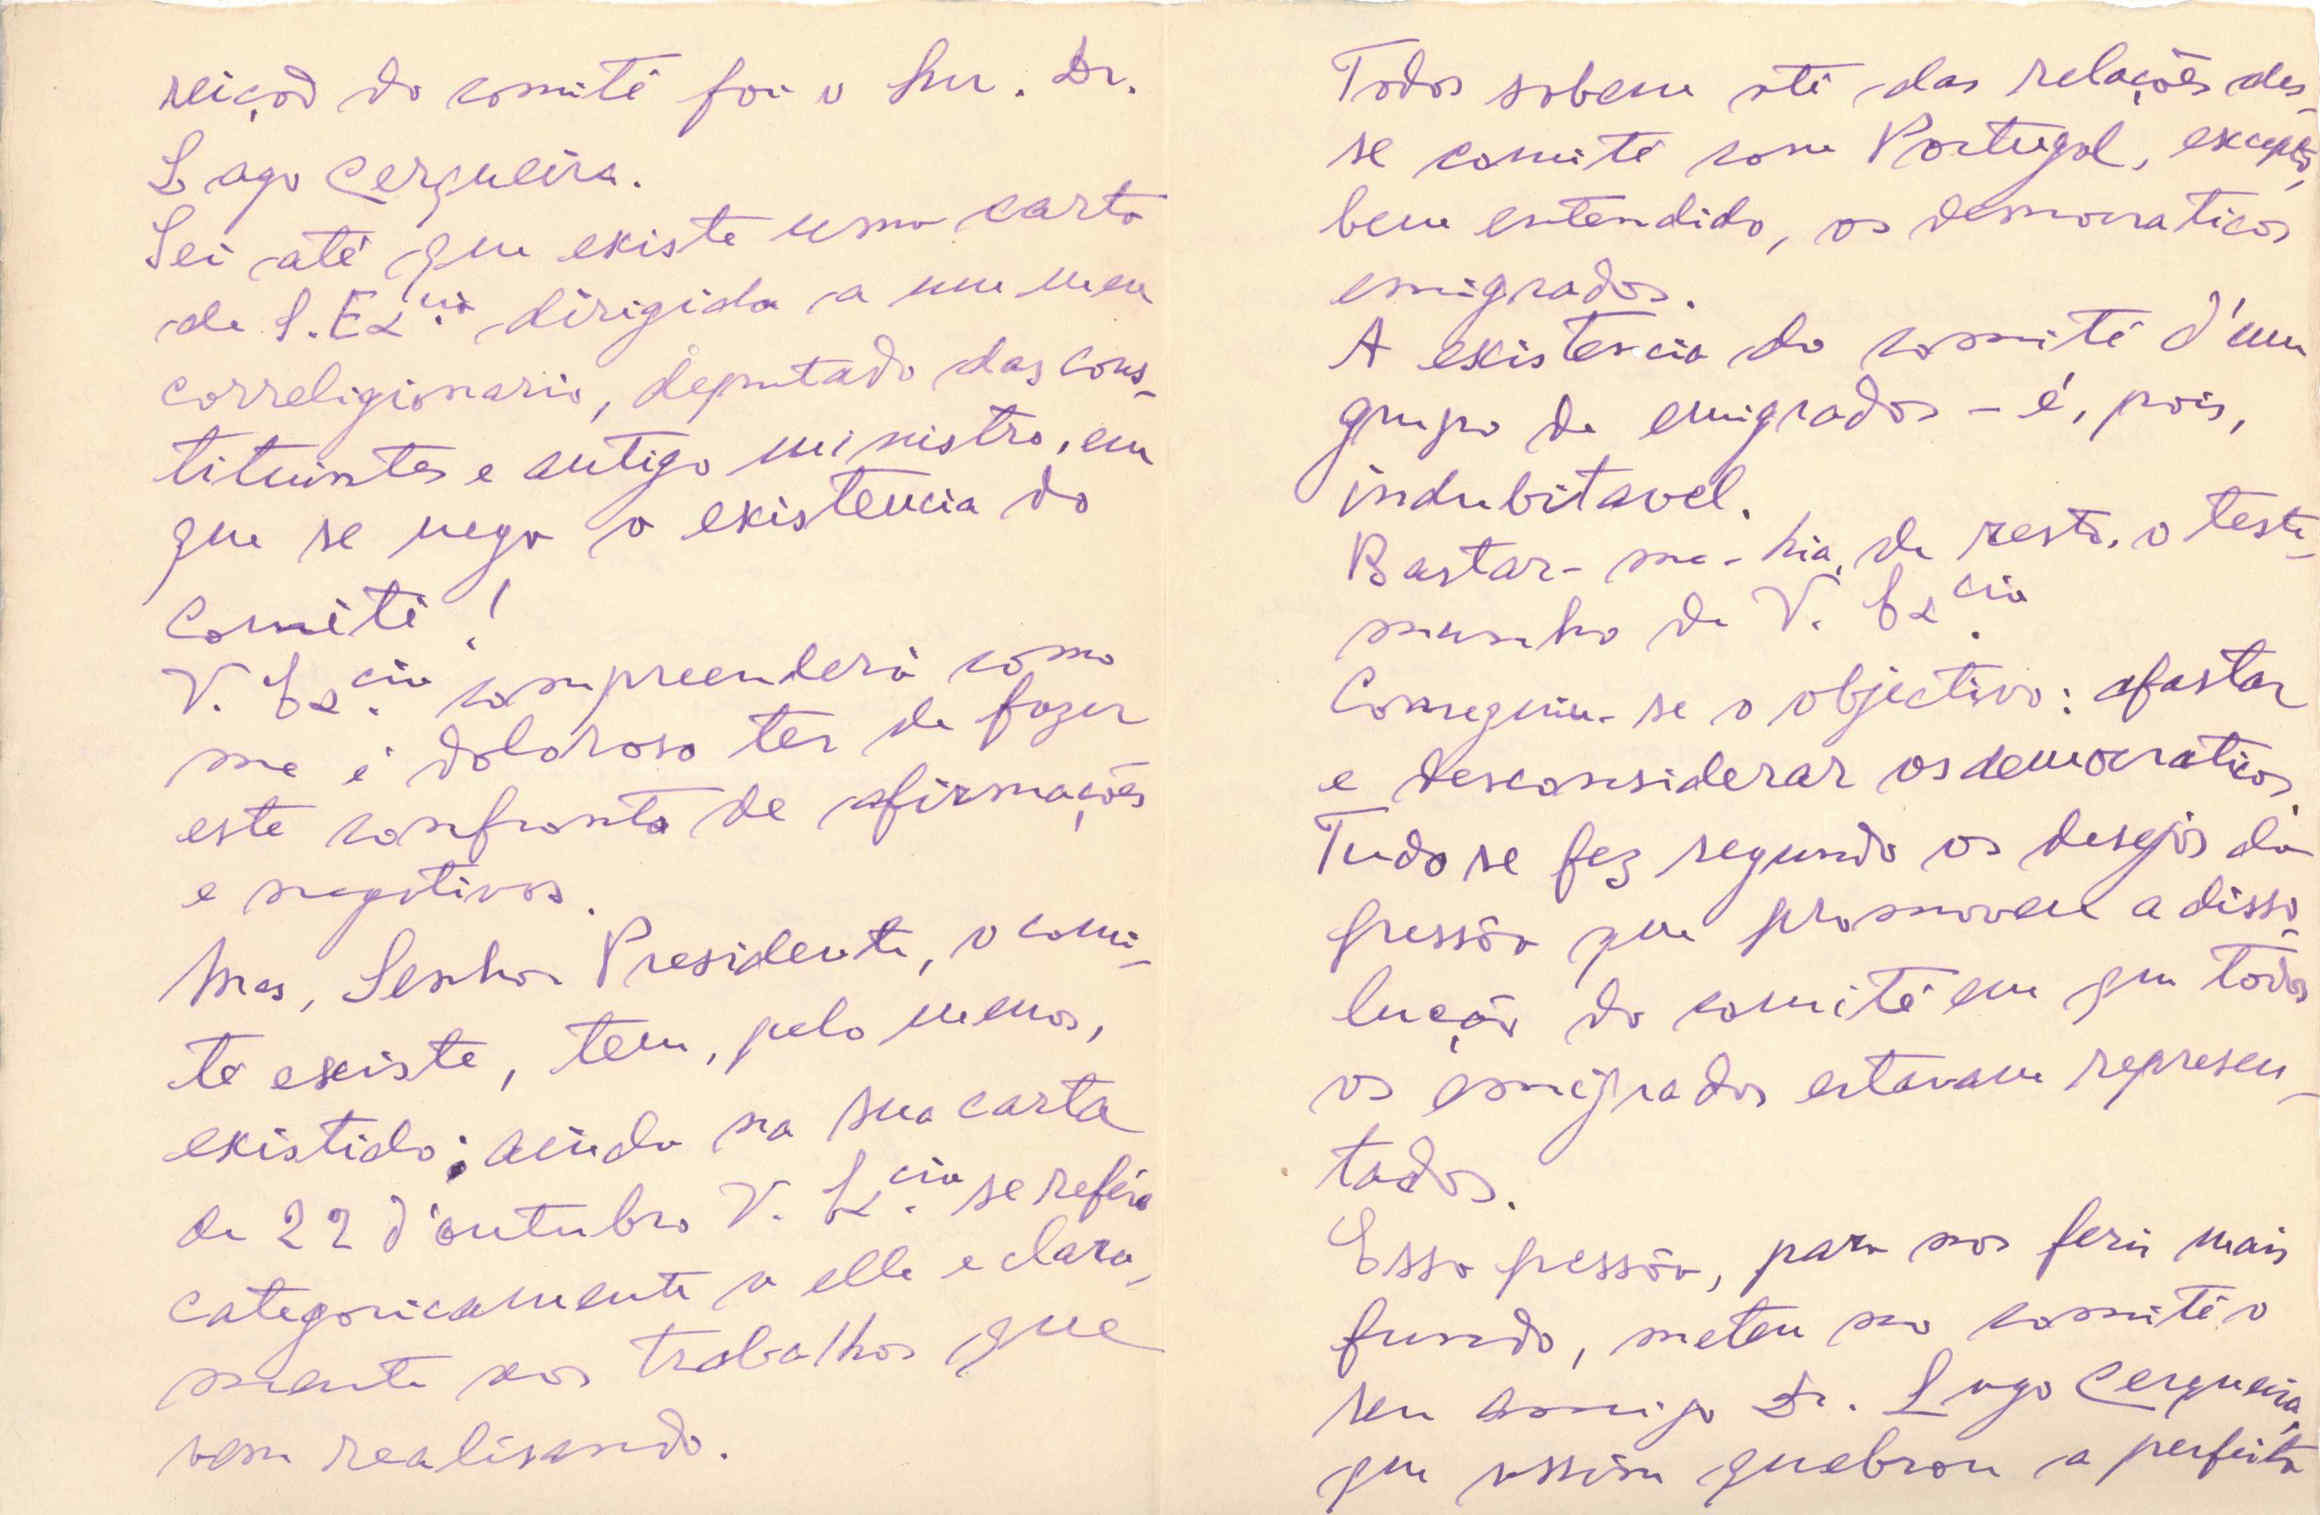 reição do comité foi o Snr. Dr.
Lago Cerqueira.
Sei até que existe uma carta
de S. Ex.cia dirigida a um meu
correligionario, deputado das cons-
tituintes e antigo ministro, em
que se nega a existencia do
Comité!
V. Ex.cia compreenderá como
me é doloroso ter de fazer
este confronto de afirmações
e negativas.
Mas, Senhor Presidente, o comi-
té existe, tem, pelo menos,
existido; ainda na sua carta
de 22 d'outubro V. Ex.cia se refere
categoricamente a elle e clara-
mente aos trabalhos que
vem realisando.
Todos sabem até das relações des-
se comité com Portugal, excepto,
bem entendido, os democraticos
emigrados.
A existencia do comité d'um
grupo de emigrados - é, pois,
indubitavel.
Bastar-me-hia, de resto, o teste-
munho de V. Ex.cia
Conseguiu-se o objectivo: afastar
e desconsiderar os democraticos.
Tudo se fez segundo os desejos da
pessôa que promoveu a disso-
lução do comité em que todos
os emigrados estavam represen-
tados.
Essa pessôa, para nos ferir mais
fundo, meteu no comité o
seu amigo Dr. Lago Cerqueira,
que assim quebrou a perfeita